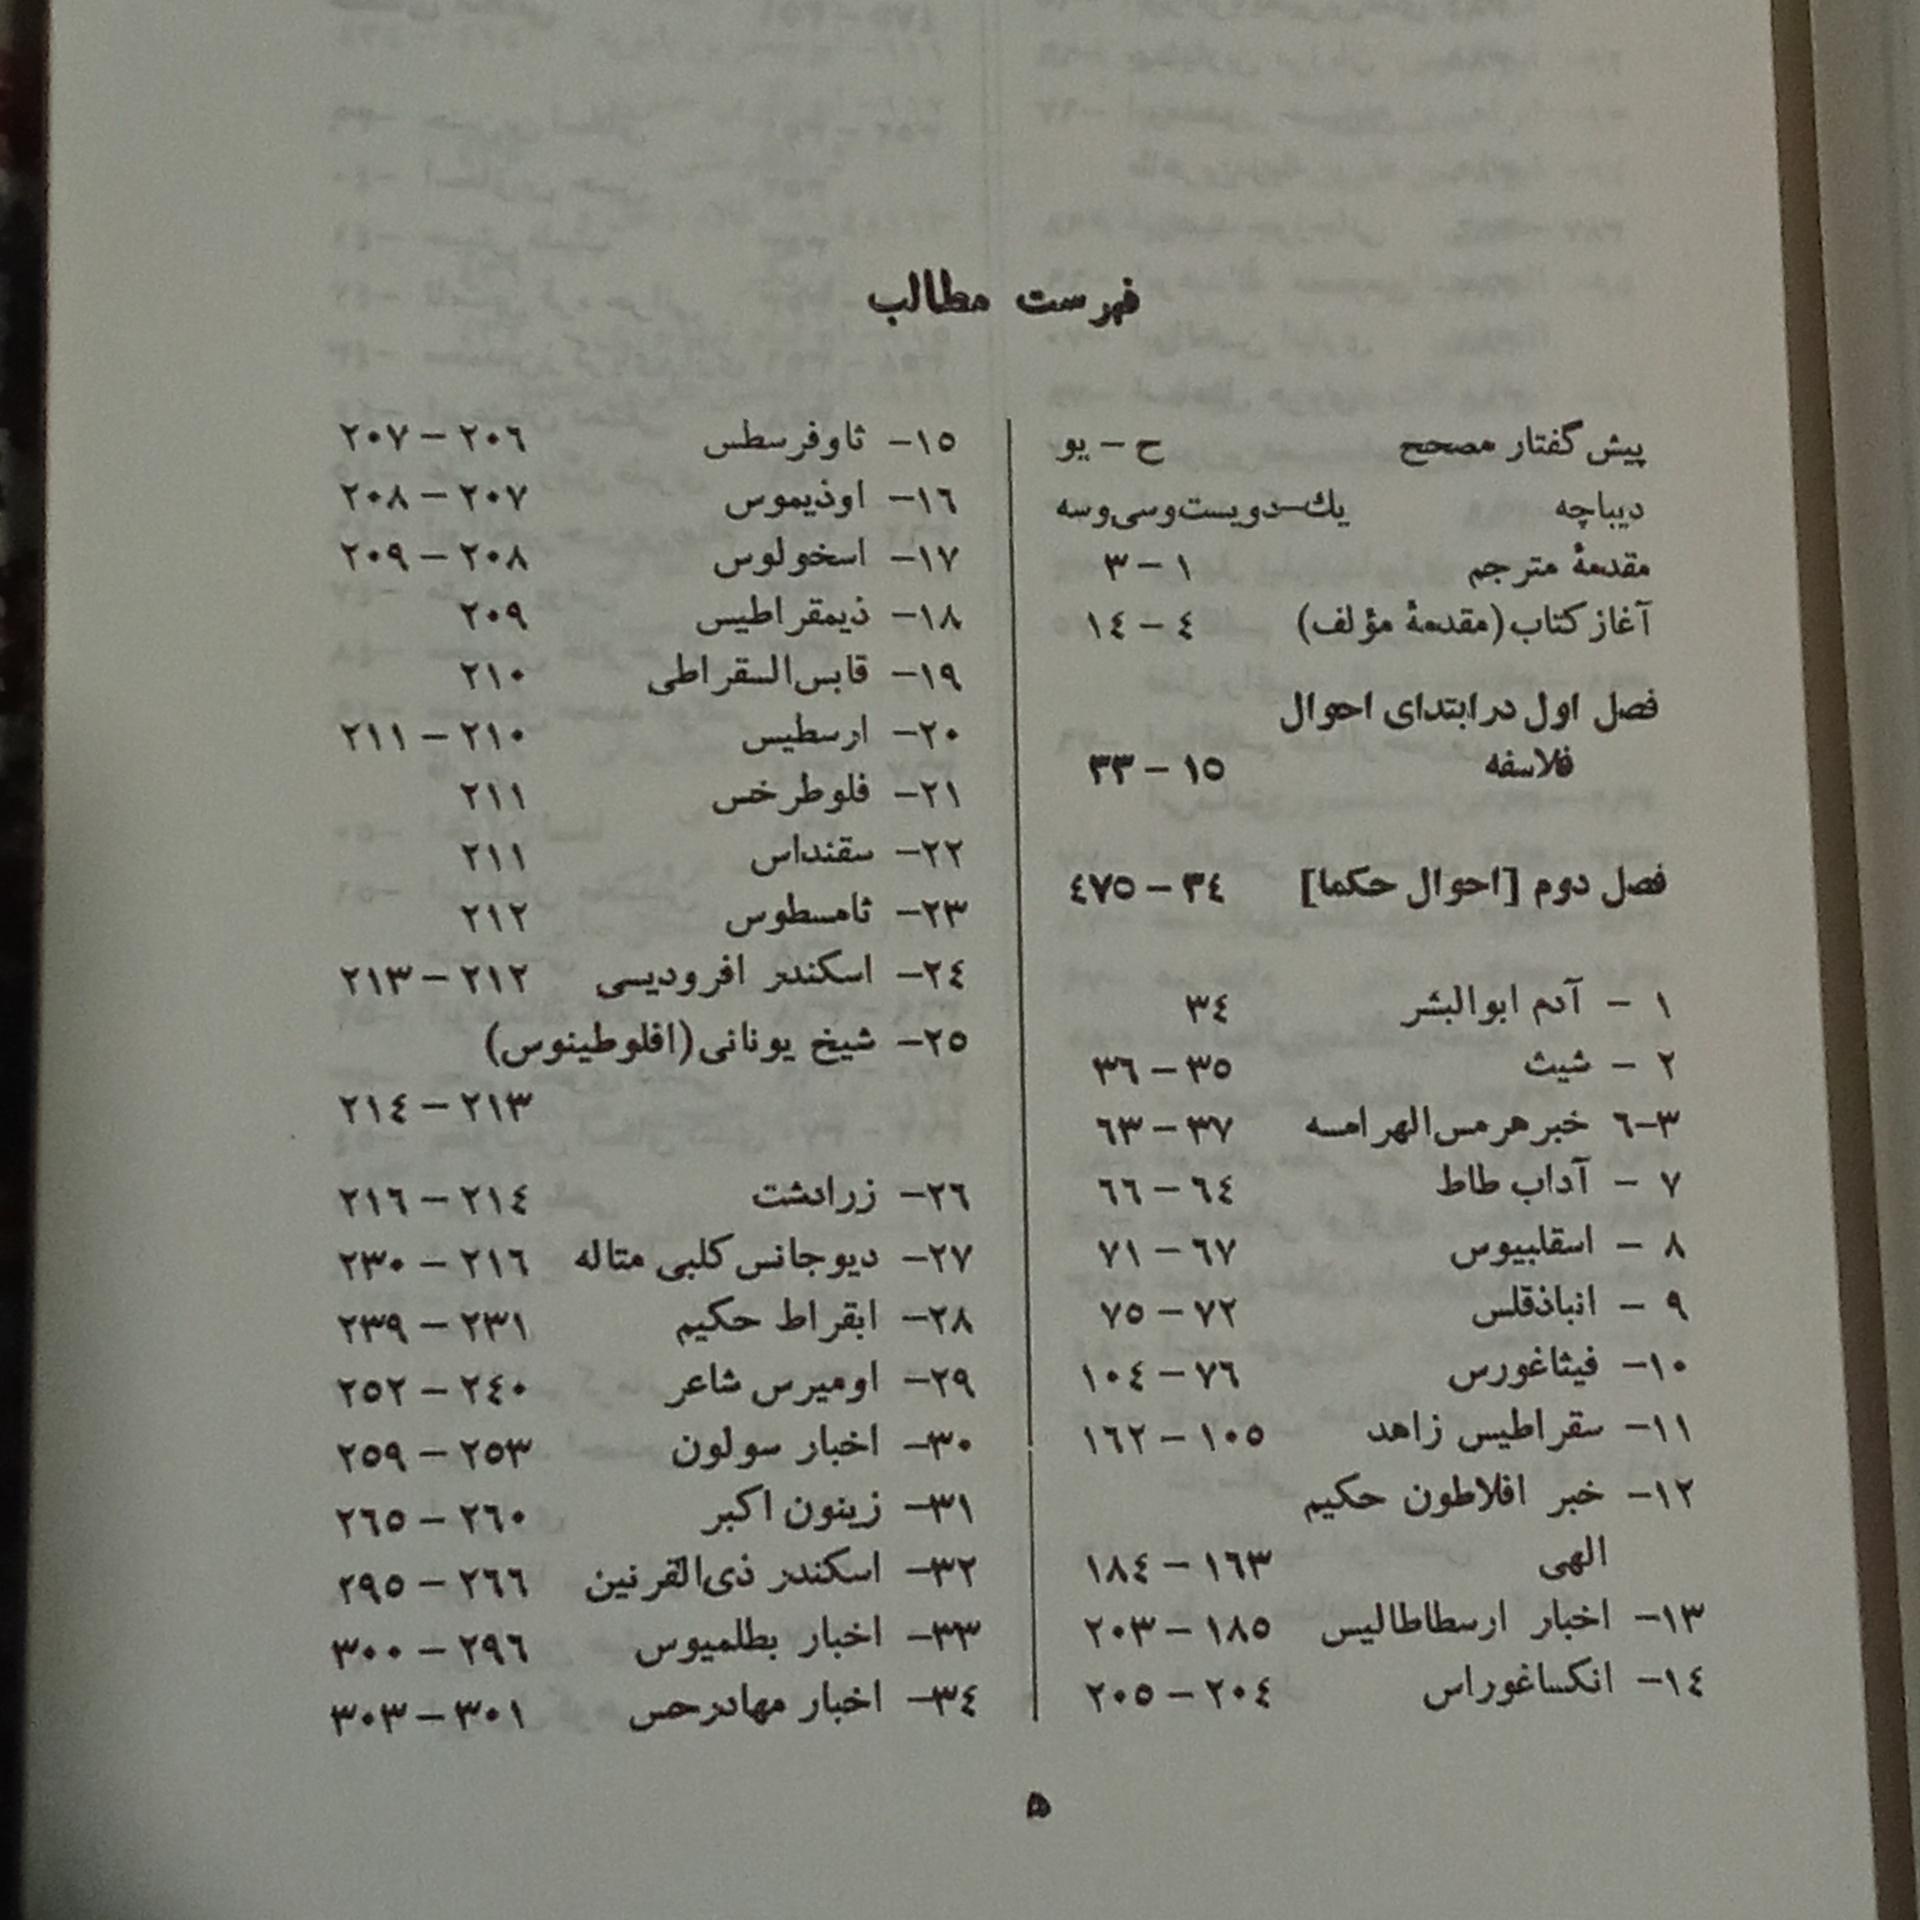 فهرست مطالب
پیش گفتار مصحح ح – یو
دیباچه یك–دویست‌وسی‌وسه
مقدمهٔ مترجم ١ – ٣
آغاز کتاب (مقدمهٔ مؤلف) ٤ – ١٤
فصل اول در ابتدای احوال
فلاسفه ١٥ – ٣٣
فصل دوم [احوال حکما] ٣٤ – ٤٧٥
١ – آدم ابوالبشر ٣٤
٢ – شیث ٣٥ – ٣٦
٣–٦ خبر هرمس‌الهرامسه ٣٧ – ٦٣
٧ – آداب طاط ٦٤ – ٦٦
٨ – اسقلبیوس ٦٧ – ٧١
٩ – انباذقلس ٧٢ – ٧٥
١٠– فیثاغورس ٧٦ – ١٠٤
١١– سقراطیس زاهد ١٠٥ – ١٦٢
١٢– خبر افلاطون حکیم
الهی ١٦٣ – ١٨٤
١٣– اخبار ارسطاطالیس ١٨٥ – ٢٠٣
١٤– انکساغوراس ٢٠٤ – ٢٠٥
١٥– ثاوفرسطس ٢٠٦ – ٢٠٧
١٦– اوذیموس ٢٠٧ – ٢٠٨
١٧– اسخولوس ٢٠٨ – ٢٠٩
١٨– ذیمقراطیس ٢٠٩
١٩– قابس‌السقراطی ٢١٠
٢٠– ارسطیس ٢١٠ – ٢١١
٢١– فلوطرخس ٢١١
٢٢– سقنداس ٢١١
٢٣– ثامسطوس ٢١٢
٢٤– اسکندر افرودیسی ٢١٢ – ٢١٣
٢٥– شیخ یونانی (افلوطینوس)
٢١٣ – ٢١٤
٢٦– زرادشت ٢١٤ – ٢١٦
٢٧– دیوجانس کلبی متاله ٢١٦ – ٢٣٠
٢٨– ابقراط حکیم ٢٣١ – ٢٣٩
٢٩– اومیرس شاعر ٢٤٠ – ٢٥٢
٣٠– اخبار سولون ٢٥٣ – ٢٥٩
٣١– زینون اکبر ٢٦٠ – ٢٦٥
٣٢– اسکندر ذی‌القرنین ٢٦٦ – ٢٩٥
٣٣– اخبار بطلمیوس ٢٩٦ – ٣٠٠
٣٤– اخبار مهادرحس ٣٠١ – ٣٠٣
۵